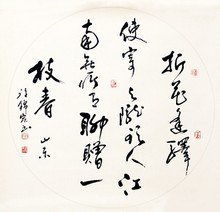 折花逢驛
使寄与隴頭人江
南無所有聊贈一
枝春 山东